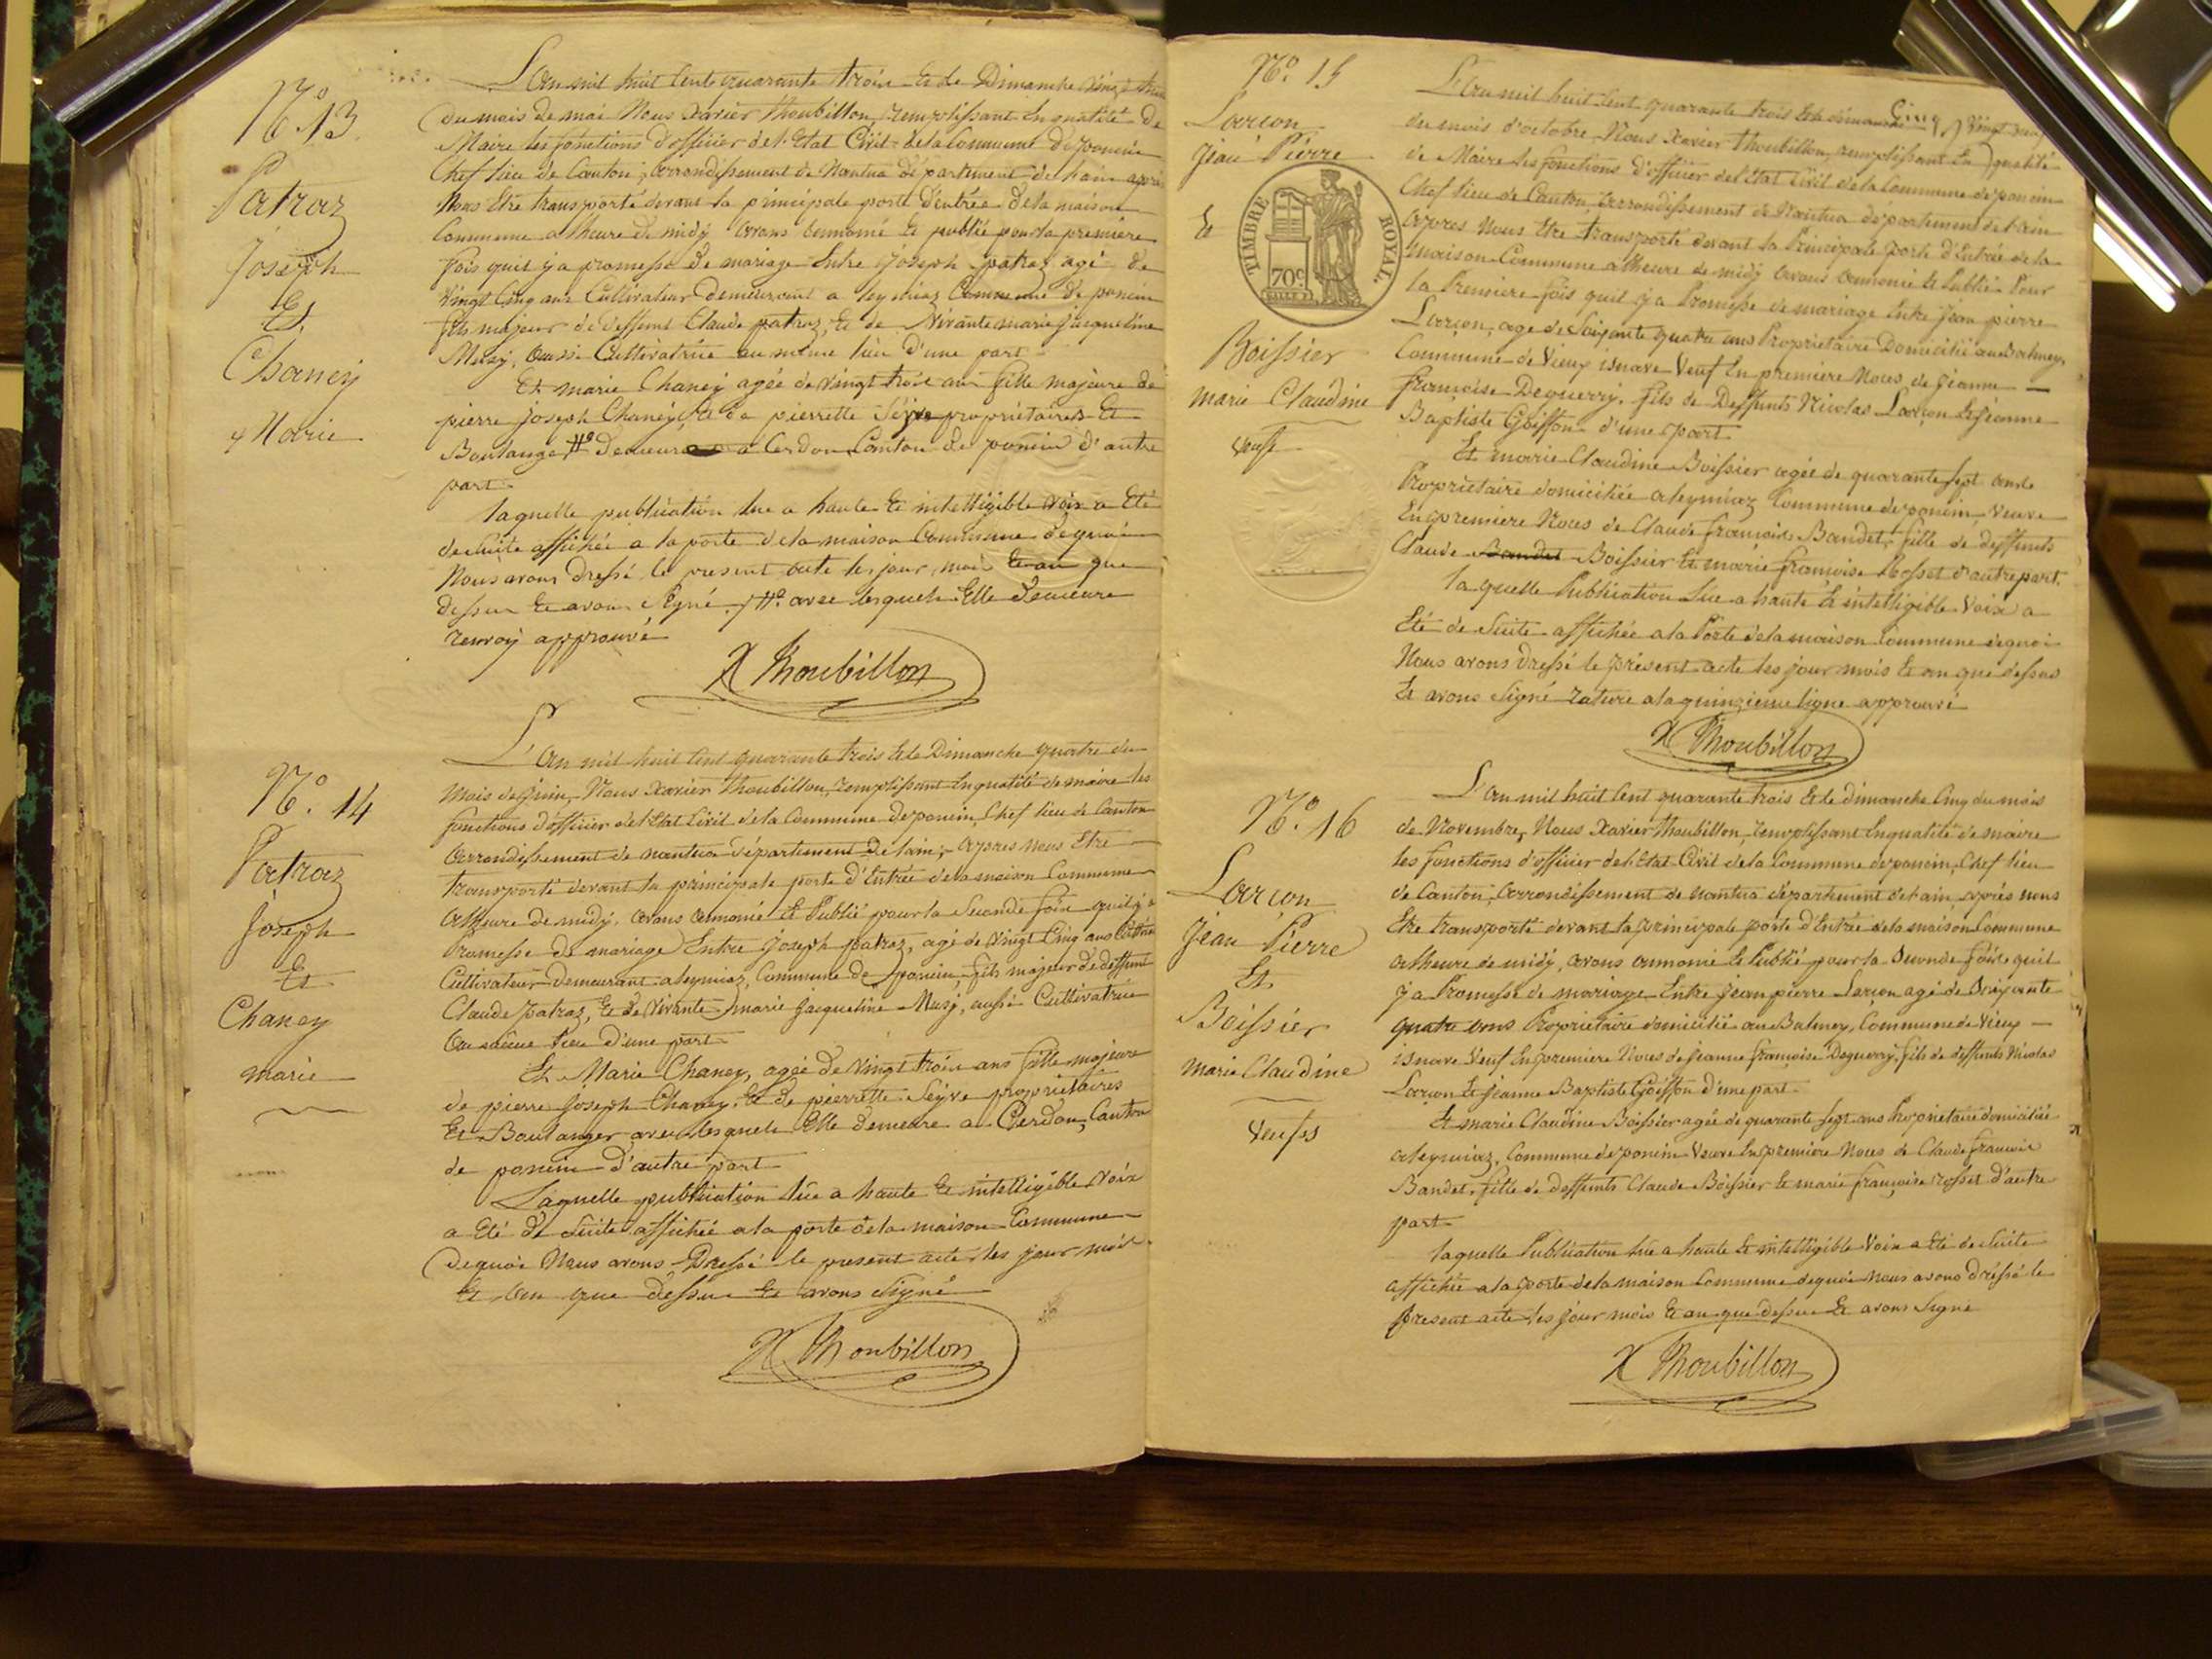 N.º 13
Patraz
Joseph
Et
Chaney
Marie
L'an mil huit cent quarante trois Et le Dimanche vingt
du mois de mai Nous Xavier Thoubillon, remplissant En qualité de
Maire les fonctions d'officier de l'Etat Civil de la Commune de poncin
Chef lieu de Canton, arrondissement de Nantua département de l'ain après
Nous Etre transporté devant la principale porte d'entrée de la maison
Commune a l'heure de midy avons annoncé Et publié pour la première
fois quil y a promesse de mariage Entre Joseph patraz agé de
vingt Cinq ans Cultivateur demeurant a leymiaz Commune de poncin
fils majeur de deffunt Claude patraz, Et de vivante marie jacqueline
Musy, aussi Cultivatrice au même lieu d'une part
Et marie Chaney agée de vingt trois ans fille majeure de
pierre joseph Chaney, Et de pierrette Séyve propriétaires Et
Boulanger demeure a Cerdon Canton de poncin d'autre
part
laquelle publication lue a haute Et intelligible voix a Eté
de suite affichée a la porte de la maison Commune de quoi
Nous avons dressé le present acte les jour, mois Et an que
dessus Et avons signé. avec lesquels Elle demeure
renvoy approuvé
X Thoubillon
N.º 14
Patraz
Joseph
Et
Chaney
marie
L'an mil huit Cent quarante trois Et le Dimanche quatre du
Mois de juin, Nous Xavier Thoubillon, remplissant En qualité de maire les
fonctions d'officier de l'Etat Civil de la Commune de poncin, Chef lieu de Canton
arrondissement de nantua département de l'ain, après nous Etre
transporté devant la principale porte d'Entrée de la maison Commune
a l'heure de midy. avons annoncé Et Publié pour la Seconde fois quil y a
Promesse de mariage Entre Joseph patraz, agé de vingt Cinq ans
Cultivateur demeurant a leymiaz, Commune de poncin, fils majeur de deffunt
Claude patraz, Et de vivante marie jacqueline Musy, aussi Cultivatrice
au même lieu d'une part
Et Marie Chaney, agée de vingt trois ans fille majeure
de pierre Joseph Chaney, Et de pierrette Séyve propriétaires
Et Boulanger avec lesquels Elle demeure a Cerdon, Canton
de poncin d'autre part
Laquelle publication lüe a haute Et intelligible voix
a Eté de suite affichée a la porte de la maison Commune
de quoi Nous avons Dressé le present acte les jour mois
Et an que dessus Et avons signé
X Thoubillon
N.º 15
Larçon
Jean Pierre
Et
TIMBRE ROYAL.
70c
Boissier
Marie Claudine
veufs
L'an mil huit Cent quarante trois Et le dimanche vingt neuf
du mois d'octobre Nous Xavier Thoubillon, remplissant En qualité
de Maire les fonctions d'officier de l'Etat Civil de la Commune de poncin
Chef lieu de Canton Arrondissement de Nantua département de l'ain
après Nous Etre transporté devant la Principale porte d'Entrée de la
Maison Commune a l'heure de midy avons annoncé Et Publié Pour
la Première fois quil y a Promesse de mariage Entre Jean pierre
Larçon, age de Soixante quatre ans Proprietaire Domicilié au Balmey,
Commune de Vieux isnave Veuf En premiere Noces de Jeanne
françoise Deguerry. fils de Deffunts Nicolas Larçon Et Jeanne
Baptiste Goiffon d'une part
Et marie Claudine Boissier agée de quarante sept ans
Propriétaire domiciliée a leymiaz Commune de poncin, veuve
En premiere Noces de Claude françois Baudet, fille de deffunts
Claude Baudet Boissier Et marie françoise Rosset d'autre part.
la quelle Publication Lue a haute Et intelligible Voix a
Eté de Suite affichée a la Porte de la maison Commune de quoi
Nous avons dressé le présent acte les jour mois Et an que dessus
Et avons Signé rature a la quinzieme ligne approuvé
X Thoubillon
N.º 16
Larçon
Jean Pierre
Et
Boissier
Marie Claudine
veufs
L'an mil huit Cent quarante trois Et le dimanche Cinq du mois
de Novembre, Nous Xavier Thoubillon, remplissant En qualité de maire
les fonctions d'officier de l'Etat Civil de la Commune de poncin, Chef lieu
de Canton, arrondissement de Nantua département de l'ain, après nous
Etre transporté devant la principale porte d'Entrée de la maison Commune
a l'heure de midy, avons annoncé Et Publié pour la Seconde fois quil
y a Promesse de mariage Entre Jean pierre Larçon agé de Soixante
quatre ans Propriétaire domicilié au Balmey, Commune de Vieux
isnave Veuf En premiere Noces de Jeanne françoise Deguerry, fils de deffunts Nicolas
Larçon Et Jeanne Baptiste Goiffon d'une part
Et marie Claudine Boissier agée de quarante sept ans Propriétaire domiciliée
a leymiaz, Commune de poncin Veuve En premiere Noces de Claude françois
Baudet, fille de deffunts Claude Boissier Et marie françoise rosset d'autre
part
laquelle Publication lüe a haute Et intelligible Voix a Eté de Suite
affichée a la porte de la maison Commune de quoi nous avons dréssé le
present acte les jour mois Et an que dessus Et avons Signé
X Thoubillon